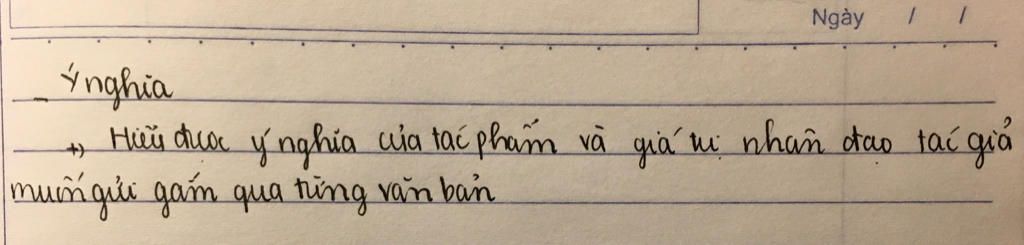 Ngày / /
- Ý nghĩa
+) Hiểu được ý nghĩa của tác phẩm và giá trị nhân đạo tác giả
muốn gửi gắm qua từng văn bản